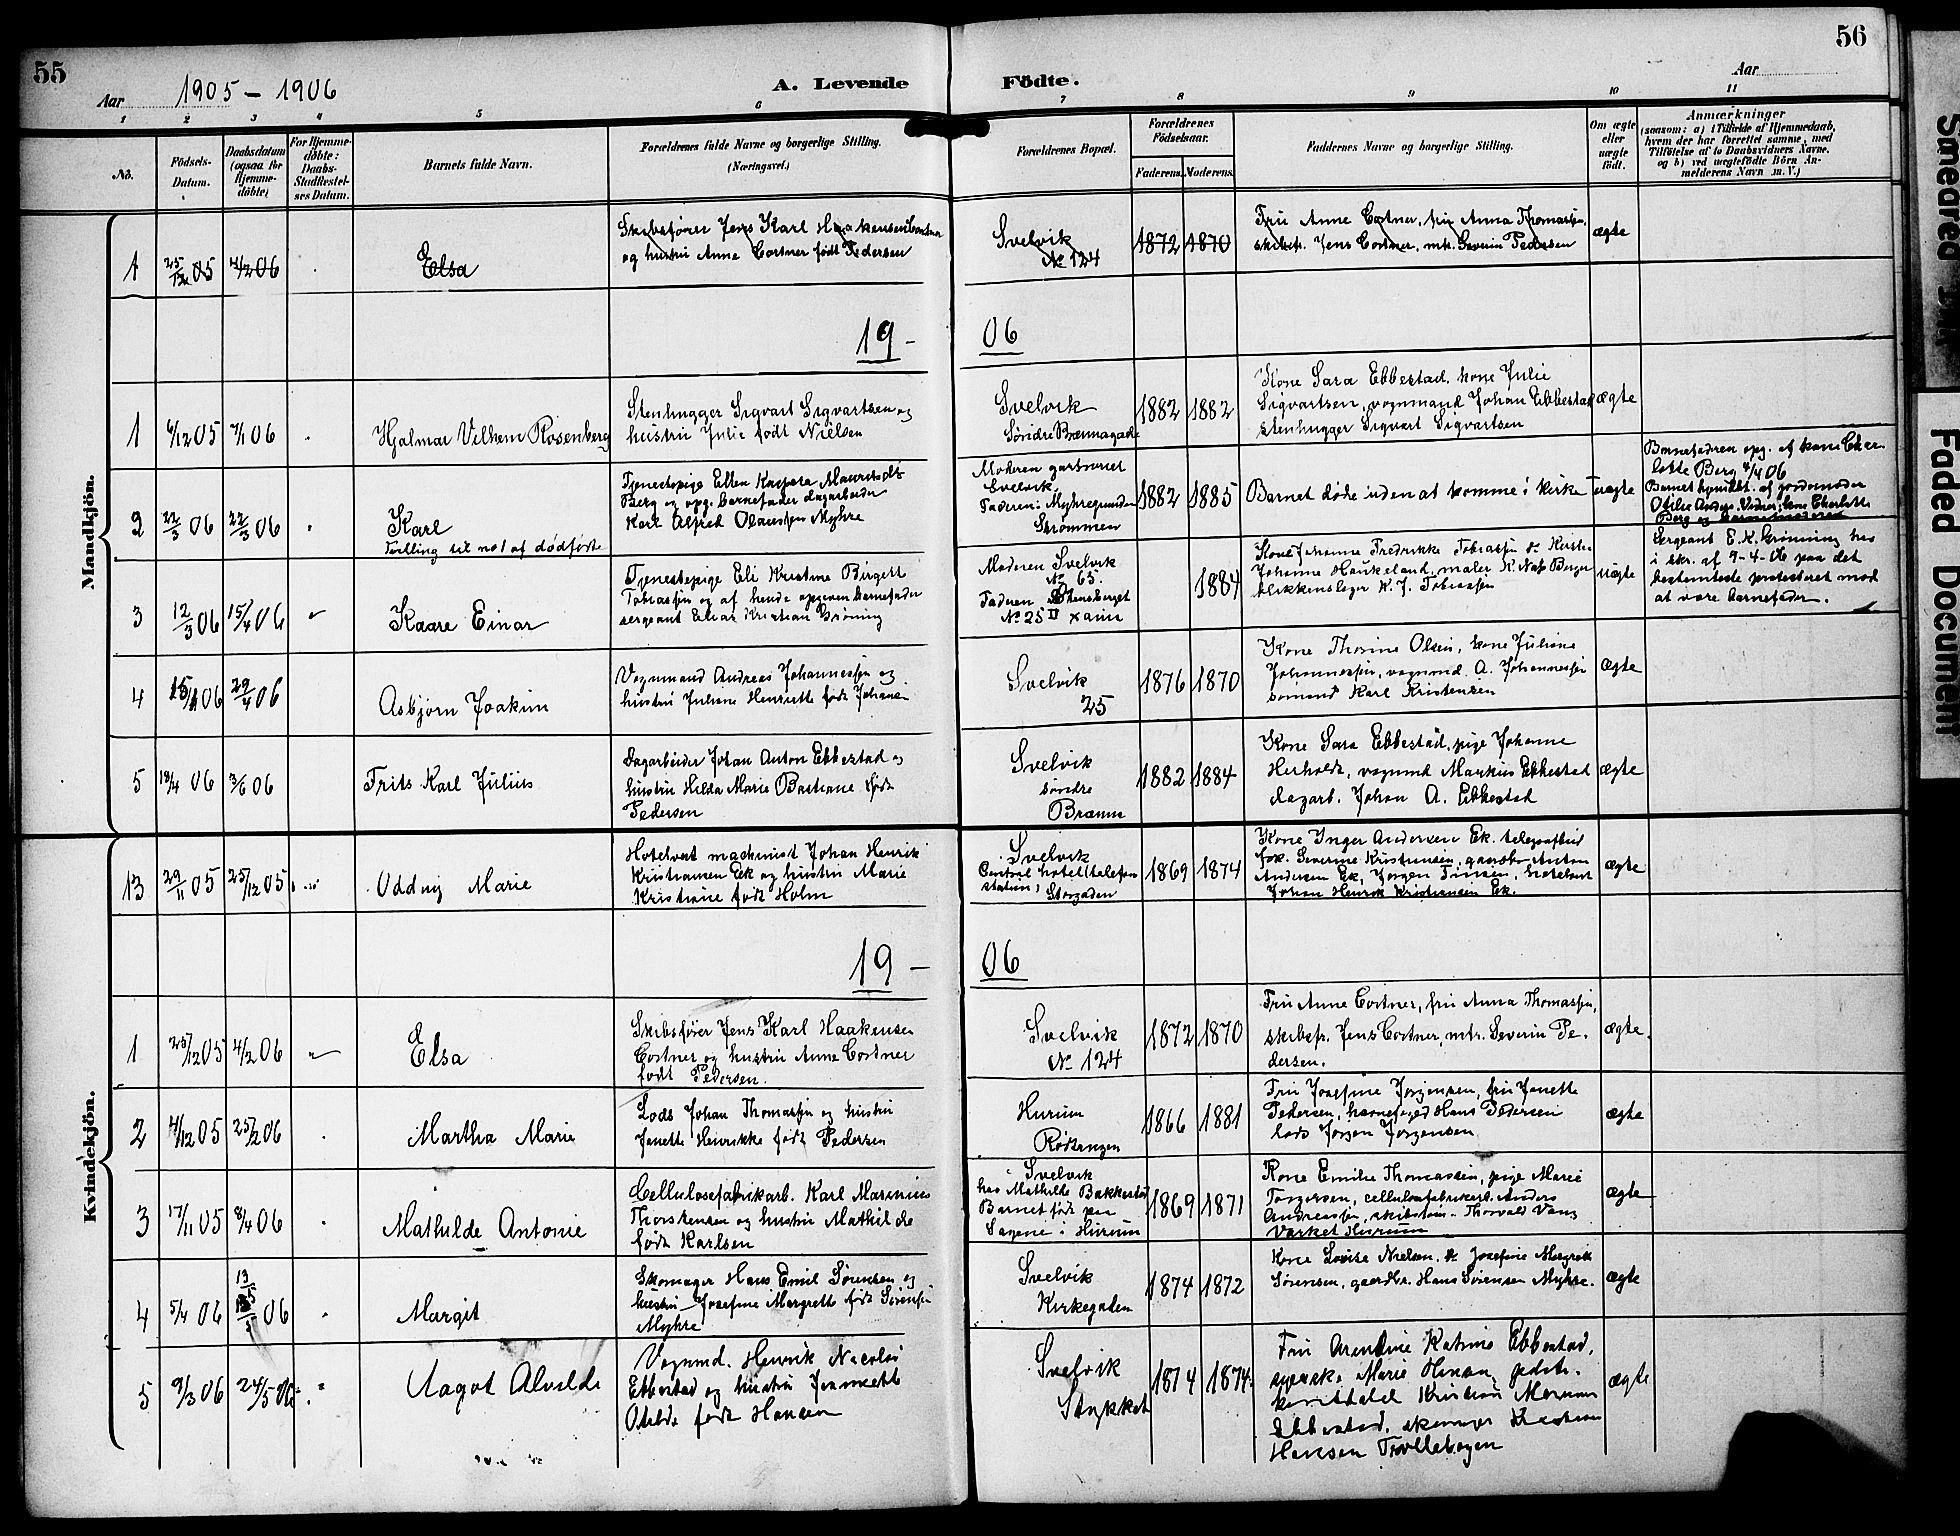 55
56
Aar 1905 - 1906
A. Levende
Födte.
Aar
1 2 3 4 5 6 7 8 9 10 11
No.
Födsels-
Datum.
Daabsdatum
(ogsaa for
Hjemme-
döbte)
For Hjemme-
döbte:
Daabs-
Stadfæstel-
ses Datum.
Barnets fulde Navn.
Forældrenes fulde Navne og borgerlige Stilling.
(Næringsvei.)
Forældrenes Bopæl.
Forældrenes
Födselsaar.
Faderens. Moderens.
Faddernes Navne og borgerlige Stilling.
Om ægte
eller
uægte
födt.
Anmærkninger
(saasom: a) i Tilfælde af Hjemmedaab,
hvem der har forrettet samme, med
Tilföielse af to Daabsvidners Navne.
og b) ved uægtefödte Börn An-
melderens Navn m. V.)
Mandkjön.
1 25/12 05 4/2 06
Elsa
Skibsfører Jens Karl Haakensen Cortner
og hustru Anne Cortner født Pedersen
Svelvik
No 124
1872 1870
Fru Anne Cortner, fru Anna Thomassen,
skibsf. Jens Cortner, mtr. Severin Pedersen
ægte
19 - 06
1 6/12 05 7/1 06
Hjalmar Vilhem Rosenberg
Stenhugger Sigvart Sigvartsen og
hustru Julie født Nielsen
Svelvik
Søndre Brænnagade
1882 1882
Kone Sara Ebbestad, kone Julie
Sigvartsen, vognmand Johan Ebbestad
stenhugger Sigvart Sigvartsen
ægte
2 22/3 06 22/3 06
Karl
Tvilling til no 1 af dødfødte
Tjenestepige Ellen Kaspara Mauritsdtr
Berg og opg. barnefader dagarbeider
Karl Alfred Olaussen Myhre
Moderen gartneriet
Svelvik
Faderen: Myhregrunden
Strømmen
1882 1885
Barnet døde inden at komme i kirke
uægte
Barnefaderen opg. af kone Char-
lotte Berg 4/4 06
Barnet hjmdbt. af jordemoder
Otilie Anders. Vidner: kone Charlotte
Berg og barnemoderen
3 12/3 06 15/4 06
Kaare Einar
Tjenestepige Eli Kristine Birgett
Tobiassen og af hende opgiven barnefader
sergeant Einar Kristian Grøning
Moderen Svelvik
No 65.
Faderen Stensberggt
No 25 II Xania
1884
Kone Johanne Fredrikke Tobiassen
Johanne Haukeland, maler K. Berger
blikkenslager K. J. Tobiassen
uægte
Sergeant E. K. Grønning har
i skr. af 9-4-06 paa det
bestemteste protesteret mod
at være barnefader.
4 06 29/4 06
Asbjørn Joakim
Vognmand Andreas Johannessen og
hustru Juliane Henriette født Johans.
Svelvik
25
1876 1870
Kone Thorine Olsen, kone Juliane
Johannessen, vognmd. A. Johannessen
sømand Karl Kristensen
ægte
5 18/4 06 3/6 06
Frits Karl Julius
Dagarbeider Johan Anton Ebbestad og
hustru Hilda Marie Bastiane født
Pedersen
Svelvik
søndre
Brænna
1882 1884
Kone Sara Ebbestad, pige Johanne
Herholdt, vognmd Markus Ebbestad
dagarb. Johan A. Ebbestad
ægte
Kvindekjön.
13 29/11 05 25/12 05
Oddny Marie
Hotelvert maskinist Johan Henrik
Kristiansen Ek og hustru Marie
Kristiane født Holm
Svelvik
Central hotel (telefon
station)
Storgaden
1869 1874
Kone Inger Andersen Ek. telegrafbud
frk. Severine Kristiansen, gaardbr. Anton
Andersen Ek, Jørgen Tinsen, hotelvert
Johan Henrik Kristiansen Ek.
ægte
19 - 06
1 25/12 05 4/2 06
Elsa
Skibsfører Jens Karl Haakensen
Cortner og hustru Anne Cortner
født Pedersen.
Svelvik
No 124
1872 1870
Fru Anne Cortner, fru Anna Thomassen,
skibsf. Jens Cortner, mtr. Severin Pe-
dersen.
ægte
2 4/12 05 25/2 06
Martha Marie
Lods Johan Thomassen og hustru
Janette Henrikke født Pedersen
Hurum
Rødtangen
1866 1881
Fru Josefine Jørgensen, fru Janette
Pedersen, havnefoged Hans Pedersen
lods Jørgen Jørgensen
ægte
3 17/11 05 8/4 06
Mathilde Antonie
Cellulosefabrikarb. Karl Marinius
Thorstensen og hustru Mathilde
født Karlsen
Svelvik
hos Mathilde Bakkestad
Barnet født paa
Sagene i Hurum
1869 1871
Kone Emilie Thomassen, pige Marie
Torgersen, cellulosefabrikarb. Anders
Andreassen, skibstøm. Thorvald Vang
Værket Hurum
ægte
4 5/4 06 13/5 06
Margit
Skomager Hans Emil Sørensen og
hustru Josefine Margrette født Sørensen
Myhre
Svelvik
Kirkegaden
1874 1872
Kone Lovise Nielsen. Josefine Margrete
Sørensen, gaardbr. Hans Sørensen Myhre.
ægte
5 9/3 06 24/5 06
Aagot Alvilde
Vognmd. Henrik Nicolai
Ebbestad og hustru Jeanette
Otilde født Hansen
Svelvik
Stykket
1874 1874.
Fru Arentine Katrine Ebbestad,
Marie Hexan,
Kristian Marman
Ebbestad, skomager Kristian
Hansen Trollebogen
ægte
Smeared Ink
Faded Document